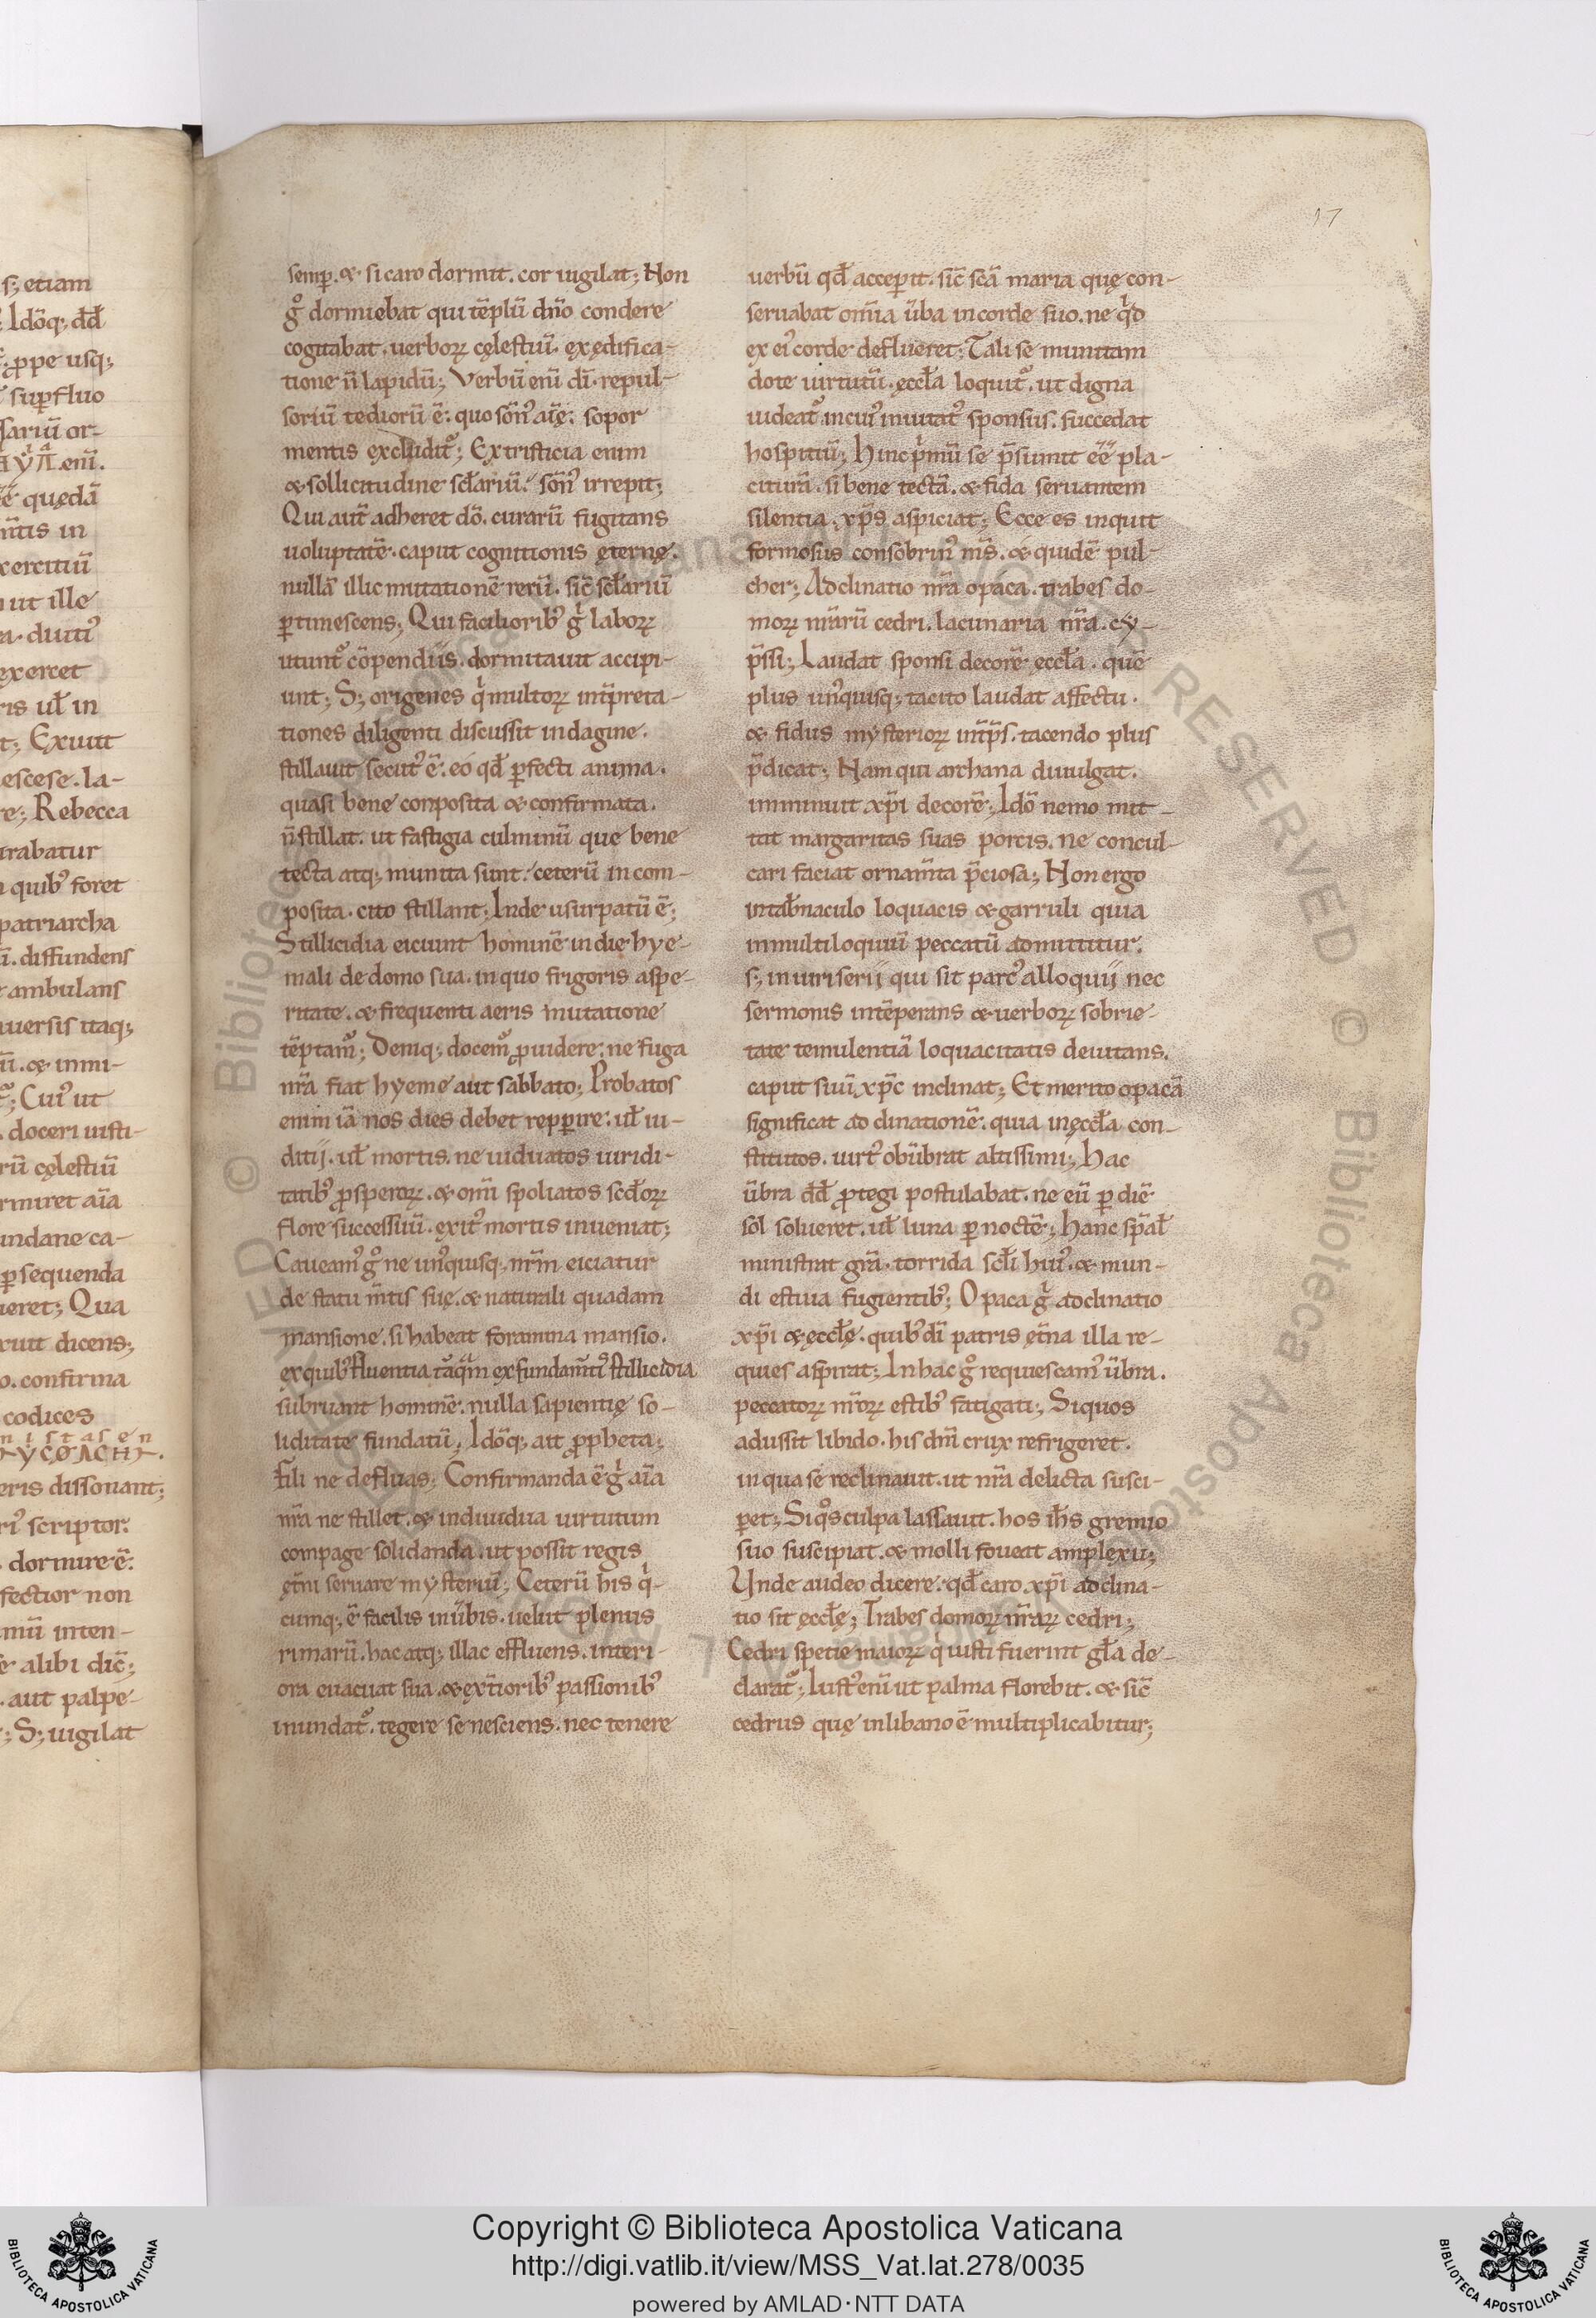 s; etiam
Idōq; dd̄
ꝓpe usq;
suꝑfluo
sariū or-
enī.
ēē quędā
in
xercitiū
ut ille
a. diuti᾽
exercet
ris ul̄ in
t; Exiuit
escese. la-
re; Rebecca
trabatur
quib᾽ foret
patriarcha
ī. diffundens
ambulans
uersis itaq;
ū. & inmi-
; Cui᾽ ut
. doceri uisti-
rū cęlestiū
rmiret aīa
undane ca-
ꝑsequenda
ueret; Qua
ruit dicens;
o. confirma
codices
n i s t a s e n
eris dissonant;
ri᾽ scriptor.
. dormire ē.
fectior non
mū inten-
e alibi dic̄;
. aut palpe-
; S; uigilat
17
semꝑ. & si caro dormit. cor uigilat; Non
gͦ dormiebat qui tēplū dn̄o condere
cogitabat. uerboꝝ cęlestiū. exędifica-
tione n̄ lapidū; Verbū enī dī. repul-
soriū tediorū ē. quo sōn᾽ aīę. sopor
mentis excludit᷑; Ex tristicia enim
& sollicitudine scl̄ariū. sōn᾽ irrepit;
Qui aut̄ adheret dō. curarū fugitans
uoluptatē. caput cognitionis ęternę.
nullā illic mutationē rerū. sic̄ scl̄ariū
ꝑtimescens; Qui faciliorib᾽ gͥ laboꝝ
utunt᷑ cōpendiis. dormitauit accipi-
unt; S; origenes qͥ multoꝝ int̄preta-
tiones diligenti discussit indagine.
stillauit secut᾽ ē. eo qd̄ ꝑfecti anima.
quasi bene conposita & confirmata.
n̄ stillat. ut fastigia culminū que bene
tecta atq; munita sunt. ceterū incom-
posita. cito stillant; Inde usurpatū ē;
Stillicidia eiciunt hominē in die hye-
mali de domo sua. in quo frigoris aspe-
ritate. & frequenti aeris mutatione
tēptam᷑; Demq; docem᷑ ꝓuidere. ne fuga
nr̄a fiat hyeme aut sabbato; Probatos
enim iā nos dies debet repꝑire. ul̄ iu-
ditij. ul̄ mortis. ne uiduatos uiridi-
tatib᾽ ꝓsperoꝝ. & om̄i spoliatos scd̄oꝝ
flore successiuū. exit᾽ mortis inueniat;
Caueam᾽ gͦ ne un᾽quisq; nr̄m eiciatur
de statu m̄tis suę. & naturali quadam
mansione. si habeat foramina mansio.
ex quib᾽ fluentia tāquā ex fundam̄ti᾽ stillicidia
subruant hominē. nulla sapientię so-
liditate fundatū; Idōq; ait ꝓpheta;
Fili ne defluas; Confirmanda ē gͥ aīa
nr̄a ne stillet. & indiuidua uirtutum
compage solidanda. ut possit regis
ęt̄ni seruare mysteriū; Ceterū his qͥ-
cumq; ē facilis in ūbis. uelut plenus
rimarū. hac atq; illac effluens. interi-
ora euacuat sua. & ext̄iorib᾽ passionib᾽
inundat᷑. tegere se nesciens. nec tenere
uerbū qd̄ acceꝑit. sic̄ sc̄a maria quę con-
seruabat om̄ia ūba in corde suo. ne qͥd
ex ei᾽ corde deflueret; Tali se munitam
dote uirtutū. eccl̄a loquit᷑. ut digna
uideat᷑ in cui᾽ inuitat᾽ sponsus. succedat
hospitiū; Hinc pͥmū se p̄sumit ēē pla-
citurā. si bene tectā. & fida seruantem
silentia. xp̄s aspiciat; Ecce es inquit
formosus consobrin᾽ ms̄. & quidē pul-
cher; Adclinatio nr̄a opaca. trabes do-
moꝝ nr̄arū cedri. lacunaria nr̄a. cy-
p̄ssi; Laudat sponsi decorē eccl̄a. quē
plus un᾽quisq; tacito laudat affectu.
& fidus mysterioꝝ int̄p̄s. tacendo plus
p̄dicat; Nam qui archana diuulgat.
imminuit xp̄i decorē; Idō nemo mit-
tit margaritas suas porcis. ne concul-
cari faciat ornam̄ta p̄ciosa; Non ergo
in tab̄naculo loquacis & garruli quia
in multiloquiū peccatū admittitur.
s; in uiri serij qui sit parc᾽ alloquij nec
sermonis intēperans & uerboꝝ sobrie-
tate temulentiā loquacitatis deuitans.
caput suū xp̄c inclinat; Et merito opacā
significat adclinationē. quia in eccl̄a con-
stitutos. uirt᾽ obūbrat altissimi; Hac
ūbra dd̄ ꝓtegi postulabat. ne eū ꝑ diē
sol solueret. ul̄ luna ꝑ noctē; Hanc sp̄al̄
ministrat gr̄a. torrida scl̄i hui᾽. & mun-
di estiua fugientib᾽; Opaca gͥ adclinatio
xp̄i & eccl̄ę. quib᾽ dī patris ęt̄na illa re-
quies aspirat; In hac gͦ requiescam᾽ ūbra.
peccatoꝝ nr̄oꝝ estib᾽ fatigati; Siquos
adussit libido. his dn̄i crux refrigeret.
in qua se reclinauit. ut nr̄a delicta susci-
ꝑet; Siqͦs culpa lassauit. hos ih̄s gremio
suo suscipiat. & molli foueat amplexu;
Unde audeo dicere. qd̄ caro xp̄i adclina-
tio sit eccl̄ę; Trabes domoꝝ nr̄aꝝ cedri;
Cedri spetie maioꝝ qͥ iusti fuerint gl̄a de-
clarat᷑; Iust᾽ enī ut palma florebit. & sic̄
cedrus quę in libano ē multiplicabitur;
Copyright © Biblioteca Apostolica Vaticana
http://digi.vatlib.it/view/MSS_Vat.lat.278/0035
powered by AMLAD·NTT DATA
BIBLIOTECA APOSTOLICA VATICANA
BIBLIOTECA APOSTOLICA VATICANA